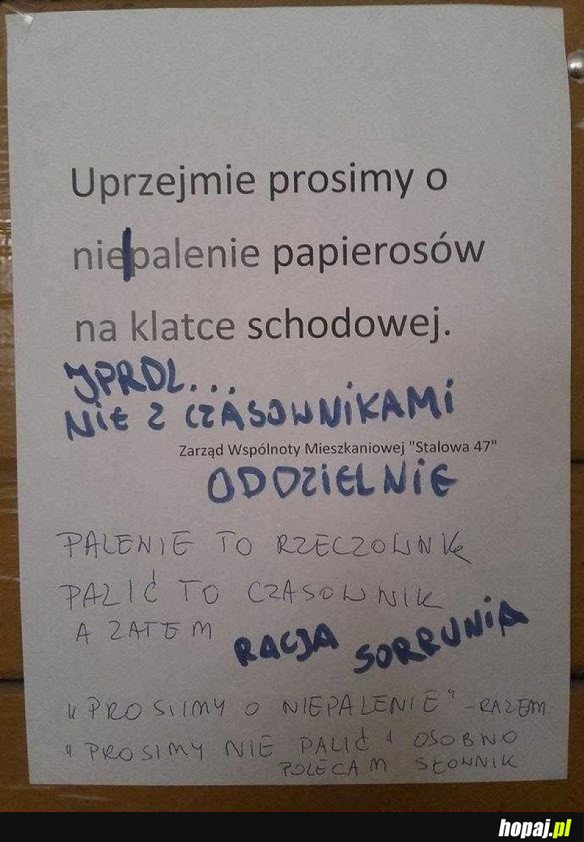 Uprzejmie prosimy o
niepalenie papierosów
na klatce schodowej.
JPRDL...
NIE Z CZASOWNIKAMI
Zarząd Wspólnoty Mieszkaniowej "Stalowa 47"
ODDZIELNIE
PALENIE TO RZECZOWNIK
PALIĆ TO CZASOWNIK
A ZATEM
RACJA SORRUNIA
"PROSIIMY O NIEPALENIE" - RAZEM
"PROSIMY NIE PALIĆ" OSOBNO
POLECAM SŁOWNIK
hopaj.pl